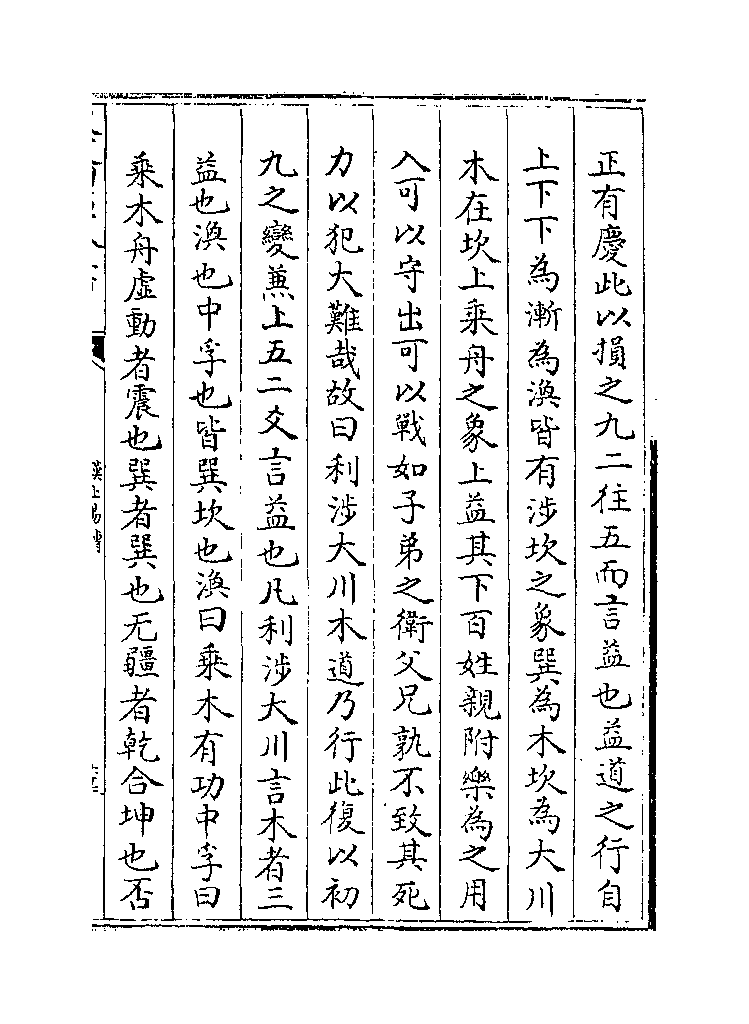 正有慶此以損之九二往五而言益也益道之行自
上下下為漸為渙皆有涉坎之象巽為木坎為大川
木在坎上乘舟之象上益其下百姓親附樂為之用
入可以守出可以戰如子弟之衛父兄孰不致其死
力以犯大難哉故曰利涉大川木道乃行此復以初
九之變兼上五二爻言益也凡利涉大川言木者三
益也渙也中孚也皆巽坎也渙曰乘木有功中孚曰
乘木舟虛動者震也巽者巽也无疆者乾合坤也否
漢上易傳